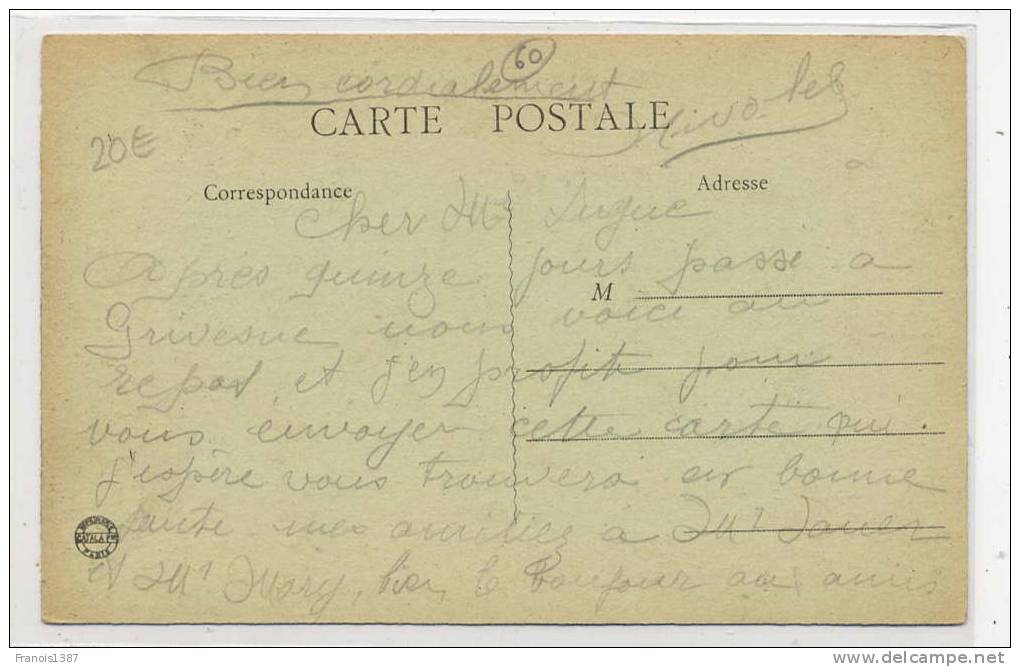 60
Bien cordialement
20€
CARTE POSTALE
Correspondance
Adresse
Cher Mr Dugue
Après quinze jours passé a
M
Grivesne nous voici au
repos et j'en profite pour
vous envoyer cette carte qui
j'espère vous trouvera en bonne
santé mes amitiés à Mr
et Mr Mary, bien le bonjour aux amis
PARIS
Francois1387
www.delcampe.net